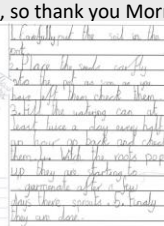 , so thank you Morr
1. Carefully put the soil in the
pot.
2. Place the seeds carefully
into the pot as soon as you
have left then check them.
3. Fill the watering can at
least twice a day every half
an hour go back and check
them. 4. Watch the roots pop
up they are starting to
germinate after a few
days there sprouts. 5. Finally
they are done.